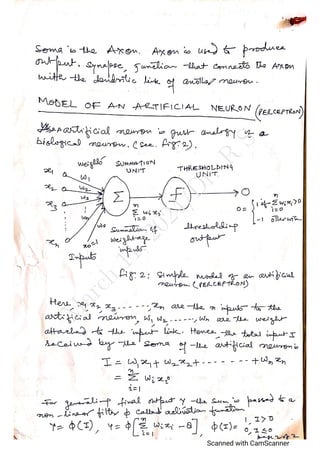 Soma is the Axon. Axon is used to produce
output. Synapse, junction that connects the Axon
with the dendritic link of another neuron.
MODEL OF AN ARTIFICIAL NEURON (PERCEPTRON)
artificial neuron is just analogy of a
biological neuron. (See Fig. 2).
weights SUMMATION UNIT THRESHOLDING UNIT
x1 w1
x2 w2
x3 w3
Σ f O
O = { 1 if Σ wi xi > 0
-1 otherwise
n Σ i=0 wi xi
xn wn x0=1 w0
Summation of weightage inputs
thresholding output
Inputs
Fig. 2: Simple model of an artificial
neuron (PERCEPTRON)
Here, x1 x2 x3 ------, xn are the n inputs to the
artificial neuron, w1, w2 ------, wn are the weight
attached to the input link. Hence, the total input I
received by the Soma of the artificial neuron is
I = w1x1 + w2x2 + ------ + wnxn
= n Σ i=1 wi xi
For generating final output y the sum is passed to a
non-linear filter φ called activation function
y = φ(I), y = φ[ n Σ i=1 wi xi - θ ] φ(I) = 1, I > 0
0, I ≤ 0
Scanned with CamScanner